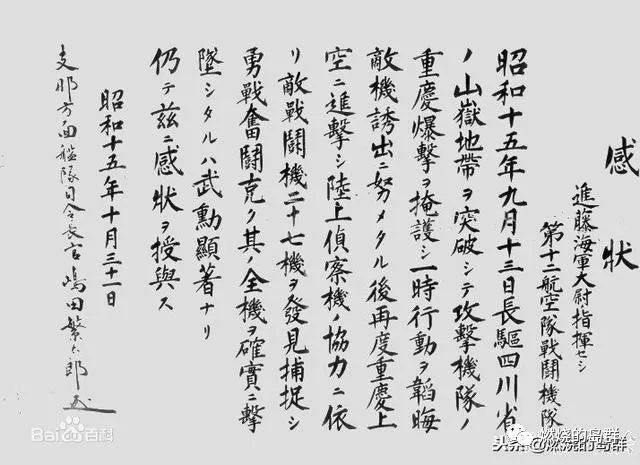 感状
進藤海軍大尉指揮セシ
第十二航空隊戦闘機隊
昭和十五年九月十三日長駆四川省
ノ山嶽地帯ヲ突破シテ攻撃機隊ノ
重慶爆撃ヲ掩護シ一時行動ヲ韜晦
敵機誘出ニ努メタル後再度重慶上
空ニ進撃シ陸上偵察機ノ協力ニ依
リ敵戦闘機二十七機ヲ發見捕捉シ
勇戰奮闘克ク其ノ全機ヲ確實ニ撃
墜シタルハ武勲顯著ナリ
仍テ茲ニ感状ヲ授與ス
昭和十五年十月三十一日
支那方面艦隊司令長官嶋田繁太郎
Bai百科
头条@燃烧的岛群
燃烧的岛群